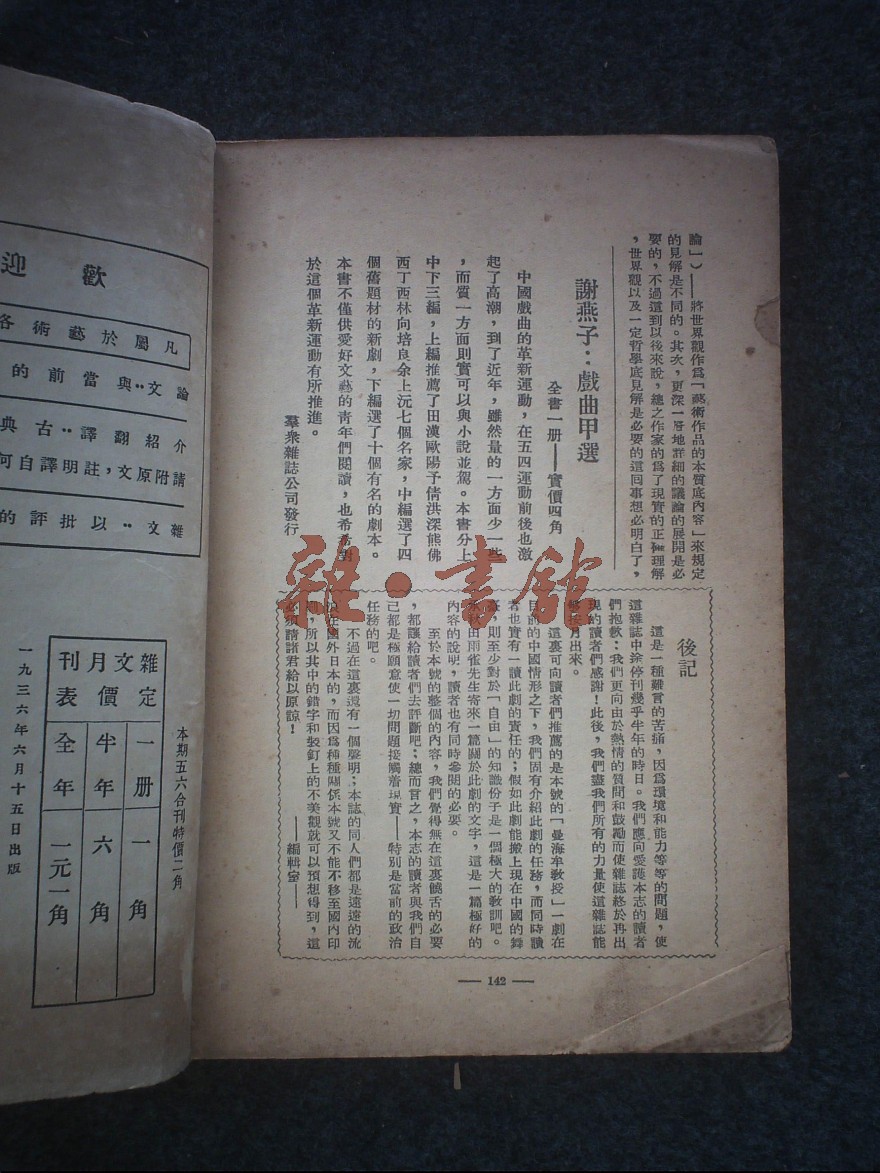 論」)——將世界觀作爲「藝術作品的本質底內容」來規定
的見解是不同的。其次,更深一層地詳細的議論的展開是必
要的,不過這到以後來說,總之作家的爲了現實的正確理解
,世界觀以及一定哲學底見解是必要的這回事想必明白了,
謝燕子:戲曲甲選
全書一册——實價四角
中國戲曲的革新運動,在五四運動前後也激
起了高潮,到了近年,雖然量的一方面少一些
,而質一方面則實可以與小說並駕。本書分上
中下三編,上編推薦了田漢歐陽予倩洪深熊佛
西丁西林向培良余上沅七個名家,中編選了四
個舊題材的新劇,下編選了十個有名的劇本。
本書不僅供愛好文藝的青年們閱讀,也希
於這個革新運動有所推進。
羣衆雜誌公司發行
後記
這是一種難言的苦痛,因爲環境和能力等等的問題,使
這雜誌中途停刊幾乎半年的時日。我們應向愛護本志的讀者
們抱歉:我們更向由於熱情的質問和鼓勵而使雜誌終於再出
現的讀者們感謝!此後,我們盡我們所有的力量使這雜誌能
按月出來。
這裏可向讀者們推薦的是本號的「曼海牟教授」一劇在
目前的中國情形之下,我們固有介紹此劇的任務,而同時讀
者也實有一讀此劇的責任的;假如此劇能搬上現在中國的舞
臺,則至少對於「自由」的知識份子是一個極大的敎訓吧。
秋田雨雀先生寄來一篇關於此劇的文字,這是一篇極好的
內容的說明,讀者也有同時參閱的必要。
至於本號的整個的內容,我們覺得無在這裏饒舌的必要
,都讓給讀者們去評斷吧:總而言之,本志的讀者與我們自
己都是極願意使一切問題接觸着現實——特別是當前的政治
任務的吧。
不過在這裏還有一個聲明:本誌的同人們都是遠遠的流
在國外日本的,而因爲種種關係本號又不能不移至國內印
刷,所以其中的錯字和裝釘上的不美觀就可以預想得到,這
必須請諸君給以原諒!
——編輯室——
— 142 —
雜·書館
歡迎
凡屬於藝術各
論文··與當前的
介紹翻譯··古典
請附原文,註明譯自何
雜文··以批評的
雜文月刊
定價表
一册 一角
半年 六角
全年 一元一角
本期五六合刊特價二角
一九三六年六月十五日出版